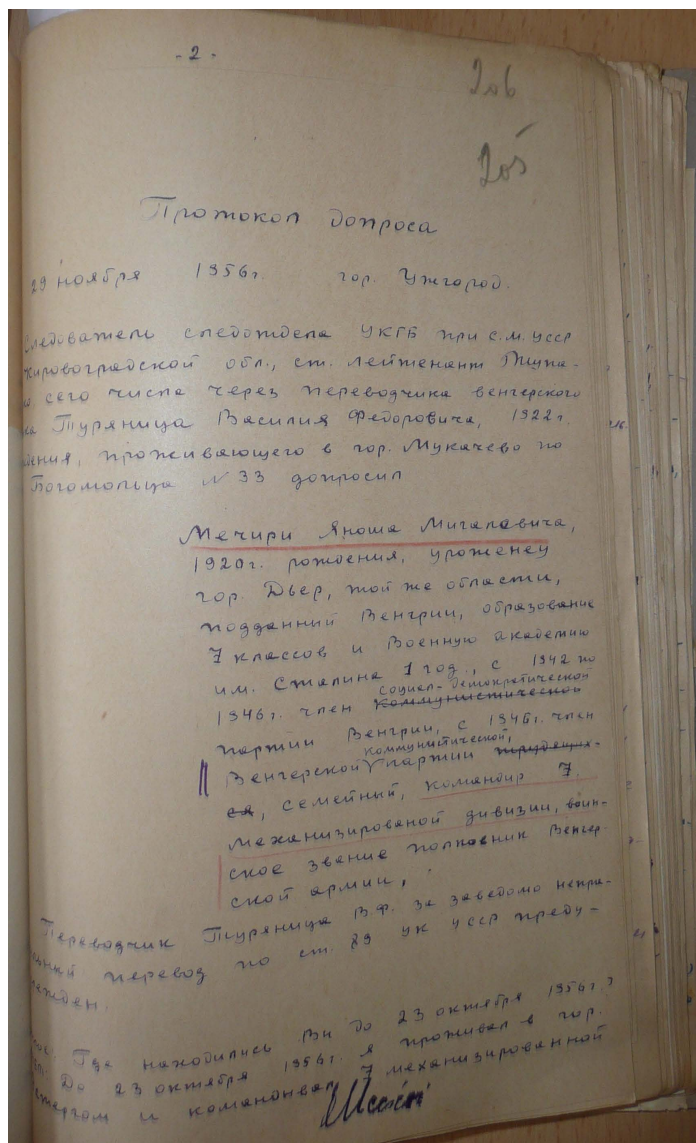 - 2 -
206
205
Протокол допроса
29 ноября 1956г. гор. Ужгород.
Следователь следотдела УКГБ при с.м. УССР
Кировоградской обл., ст. лейтенант
сего числа через переводчика венгерского
Туряница Василия Федоровича, 1922г.
дения, проживающего в гор. Мукачево по
Богомольца N 33 допросил
Мечири Яноша Мигалевича,
1920г. рождения, уроженец
гор. Дьер, той же области,
подданный Венгрии, образование
7 классов и Военную академию
им. Сталина 1 год., с 1942 по
социал-демократической
1946г. член коммунистической
партии Венгрии, с 1946г. член
коммунистической,
Венгерской партии трудящих-
ся, семейный, командир 7.
механизированой дивизии, воин-
ское звание полковник Венгер-
ской армии,
Переводчик Туряница В.Ф. за заведомо непра-
льный перевод по ст. 89 УК УССР преду-
режден.
Где находились Вы до 23 октября 1956г.?
До 23 октября 1956г. я проживал в гор.
и командовал 7 механизированной